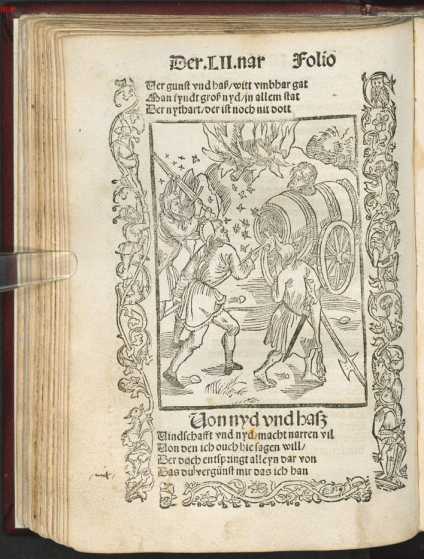 Der.LII.nar Folio
Der gunst vnd haß/witt vmbhar gat
Man fyndt groß nyd/jn allem stat
Der nythart/der ist noch nit dott
Von nyd vnd haß
Vindschafft vnd nyd/macht narren vil
Von den ich ouch hie sagen will/
Der doch entspringt alleyn dar von
Das du vergünst mir das ich han